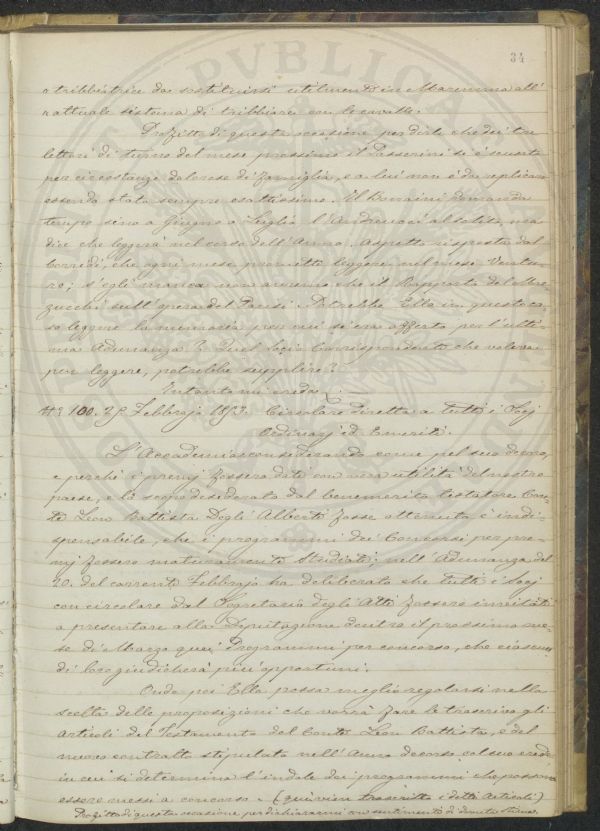 34
o tribbiatrice da sostituirsi utilmente in Maremma all'
attuale sistema di tribbiare con le cavalle.
Profitto di questa occasione per dirle che dei tre
lettori di turno del mese prossimo il Passerini si è scusato
per circostanze dolorose di famiglia, e a lui non è da replicare
essendo stato sempre esattissimo. Il Bonaini domanda
tempo sino a Giugno o Luglio. L'Andreucci al solito, ma
dice che leggerà nel corso dell'Anno. Aspetto risposta dal
Corridi, che ogni mese promette leggere nel mese ventu-
ro; s'egli manca non avremo che il Rapporto del
sull'opera del Parisi. Potrebbe Ella in questo ca-
so leggere la memoria per cui si era offerto per l'ulti-
ma Adunanza? Quel Socio Corrispondente che voleva
pur leggere, potrebbe supplire?
Intanto mi creda
N.° 100. 25 Febbrajo 1853. Circolare diretta a tutti i Socj
Ordinarj ed Emeriti.
L'Accademia considerando come pel suo decoro,
e perchè i premj fossero dati con vera utilità del nostro
paese, e lo scopo desiderato dal benemerito testatore Con-
te Leon Battista Degli Alberti fosse ottenuto è indi-
spensabile, che i programmi dei Concorsi per pre-
mj fossero maturamente studiati; nell'Adunanza del
20. del corrente Febbrajo ha deliberato che tutti i Socj
con circolare dal Segretario degli Atti fossero invitati
a presentare alla Deputazione dentro il prossimo me-
se di Marzo quei Programmi per concorso, che ciascuno
di loro giudicherà più opportuni.
Onde poi Ella possa meglio regolarsi nella
scelta delle proposizioni che vorrà fare le trascrivo gli
Articoli del Testamento del Conte Leon Battista, e del
nuovo contratto stipulato nell'Anno decorso col suo erede
in cui si determina l'indole dei programmi che possono
essere messi a concorso. (qui vien trascritto i detti Articoli)
Profitto di questa occasione per dichiararmi con sentimento di dovuta stima